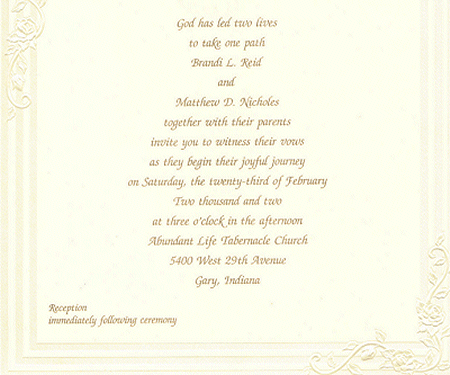 God has led two lives
to take one path
Brandi L. Reid
and
Matthew D. Nicholes
together with their parents
invite you to witness their vows
as they begin their joyful journey
on Saturday, the twenty-third of February
Two thousand and two
at three o'clock in the afternoon
Abundant Life Tabernacle Church
5400 West 29th Avenue
Gary, Indiana
Reception
immediately following ceremony